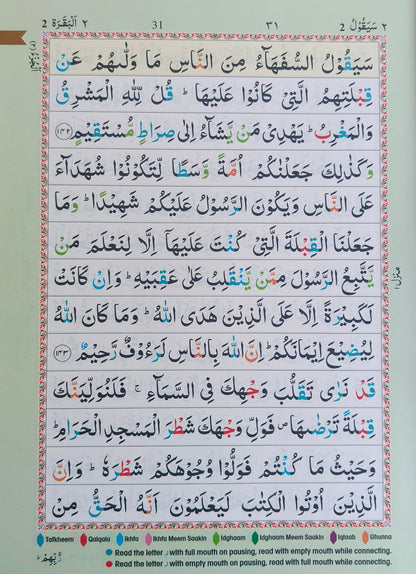 ٢ اَلْبَقَرَة 2
31
٣١
٢ سَيَقُوْلُ 2
سَيَقُوْلُ السُّفَهَآءُ مِنَ النَّاسِ مَا وَلّٰىهُمْ عَنْ
قِبْلَتِهِمُ الَّتِيْ كَانُوْا عَلَيْهَا ؕ قُلْ لِّلّٰهِ الْمَشْرِقُ
وَالْمَغْرِبُ ؕ يَهْدِيْ مَنْ يَّشَآءُ اِلٰى صِرَاطٍ مُّسْتَقِيْمٍ ﴿١٤٢﴾
وَكَذٰلِكَ جَعَلْنٰكُمْ اُمَّةً وَّسَطًا لِّتَكُوْنُوْا شُهَدَآءَ
عَلَى النَّاسِ وَيَكُوْنَ الرَّسُوْلُ عَلَيْكُمْ شَهِيْدًا ؕ وَمَا
جَعَلْنَا الْقِبْلَةَ الَّتِيْ كُنْتَ عَلَيْهَاۤ اِلَّا لِنَعْلَمَ مَنْ
يَّتَّبِعُ الرَّسُوْلَ مِمَّنْ يَّنْقَلِبُ عَلٰى عَقِبَيْهِ ؕ وَاِنْ كَانَتْ
لَكَبِيْرَةً اِلَّا عَلَى الَّذِيْنَ هَدَى اللّٰهُ ؕ وَمَا كَانَ اللّٰهُ
لِيُضِيْعَ اِيْمَانَكُمْ ؕ اِنَّ اللّٰهَ بِالنَّاسِ لَرَءُوْفٌ رَّحِيْمٌ ﴿١٤٣﴾
قَدْ نَرٰى تَقَلُّبَ وَجْهِكَ فِي السَّمَآءِ ۚ فَلَنُوَلِّيَنَّكَ
قِبْلَةً تَرْضٰىهَا ۪ فَوَلِّ وَجْهَكَ شَطْرَ الْمَسْجِدِ الْحَرَامِ ؕ
وَحَيْثُ مَا كُنْتُمْ فَوَلُّوْا وُجُوْهَكُمْ شَطْرَهٗ ؕ وَاِنَّ
الَّذِيْنَ اُوْتُوا الْكِتٰبَ لَيَعْلَمُوْنَ اَنَّهُ الْحَقُّ مِنْ
رَّبِّهِمْ ؕ
منزل ١
Tafkheem Qalqala Ikhfa Ikhfa Meem Saakin Idghaam Idghaam Meem Saakin Iqlaab Ghunna
Read the letter ر with full mouth on pausing, read with empty mouth while connecting.
Read the letter ر with empty mouth on pausing, read with full mouth while connecting.